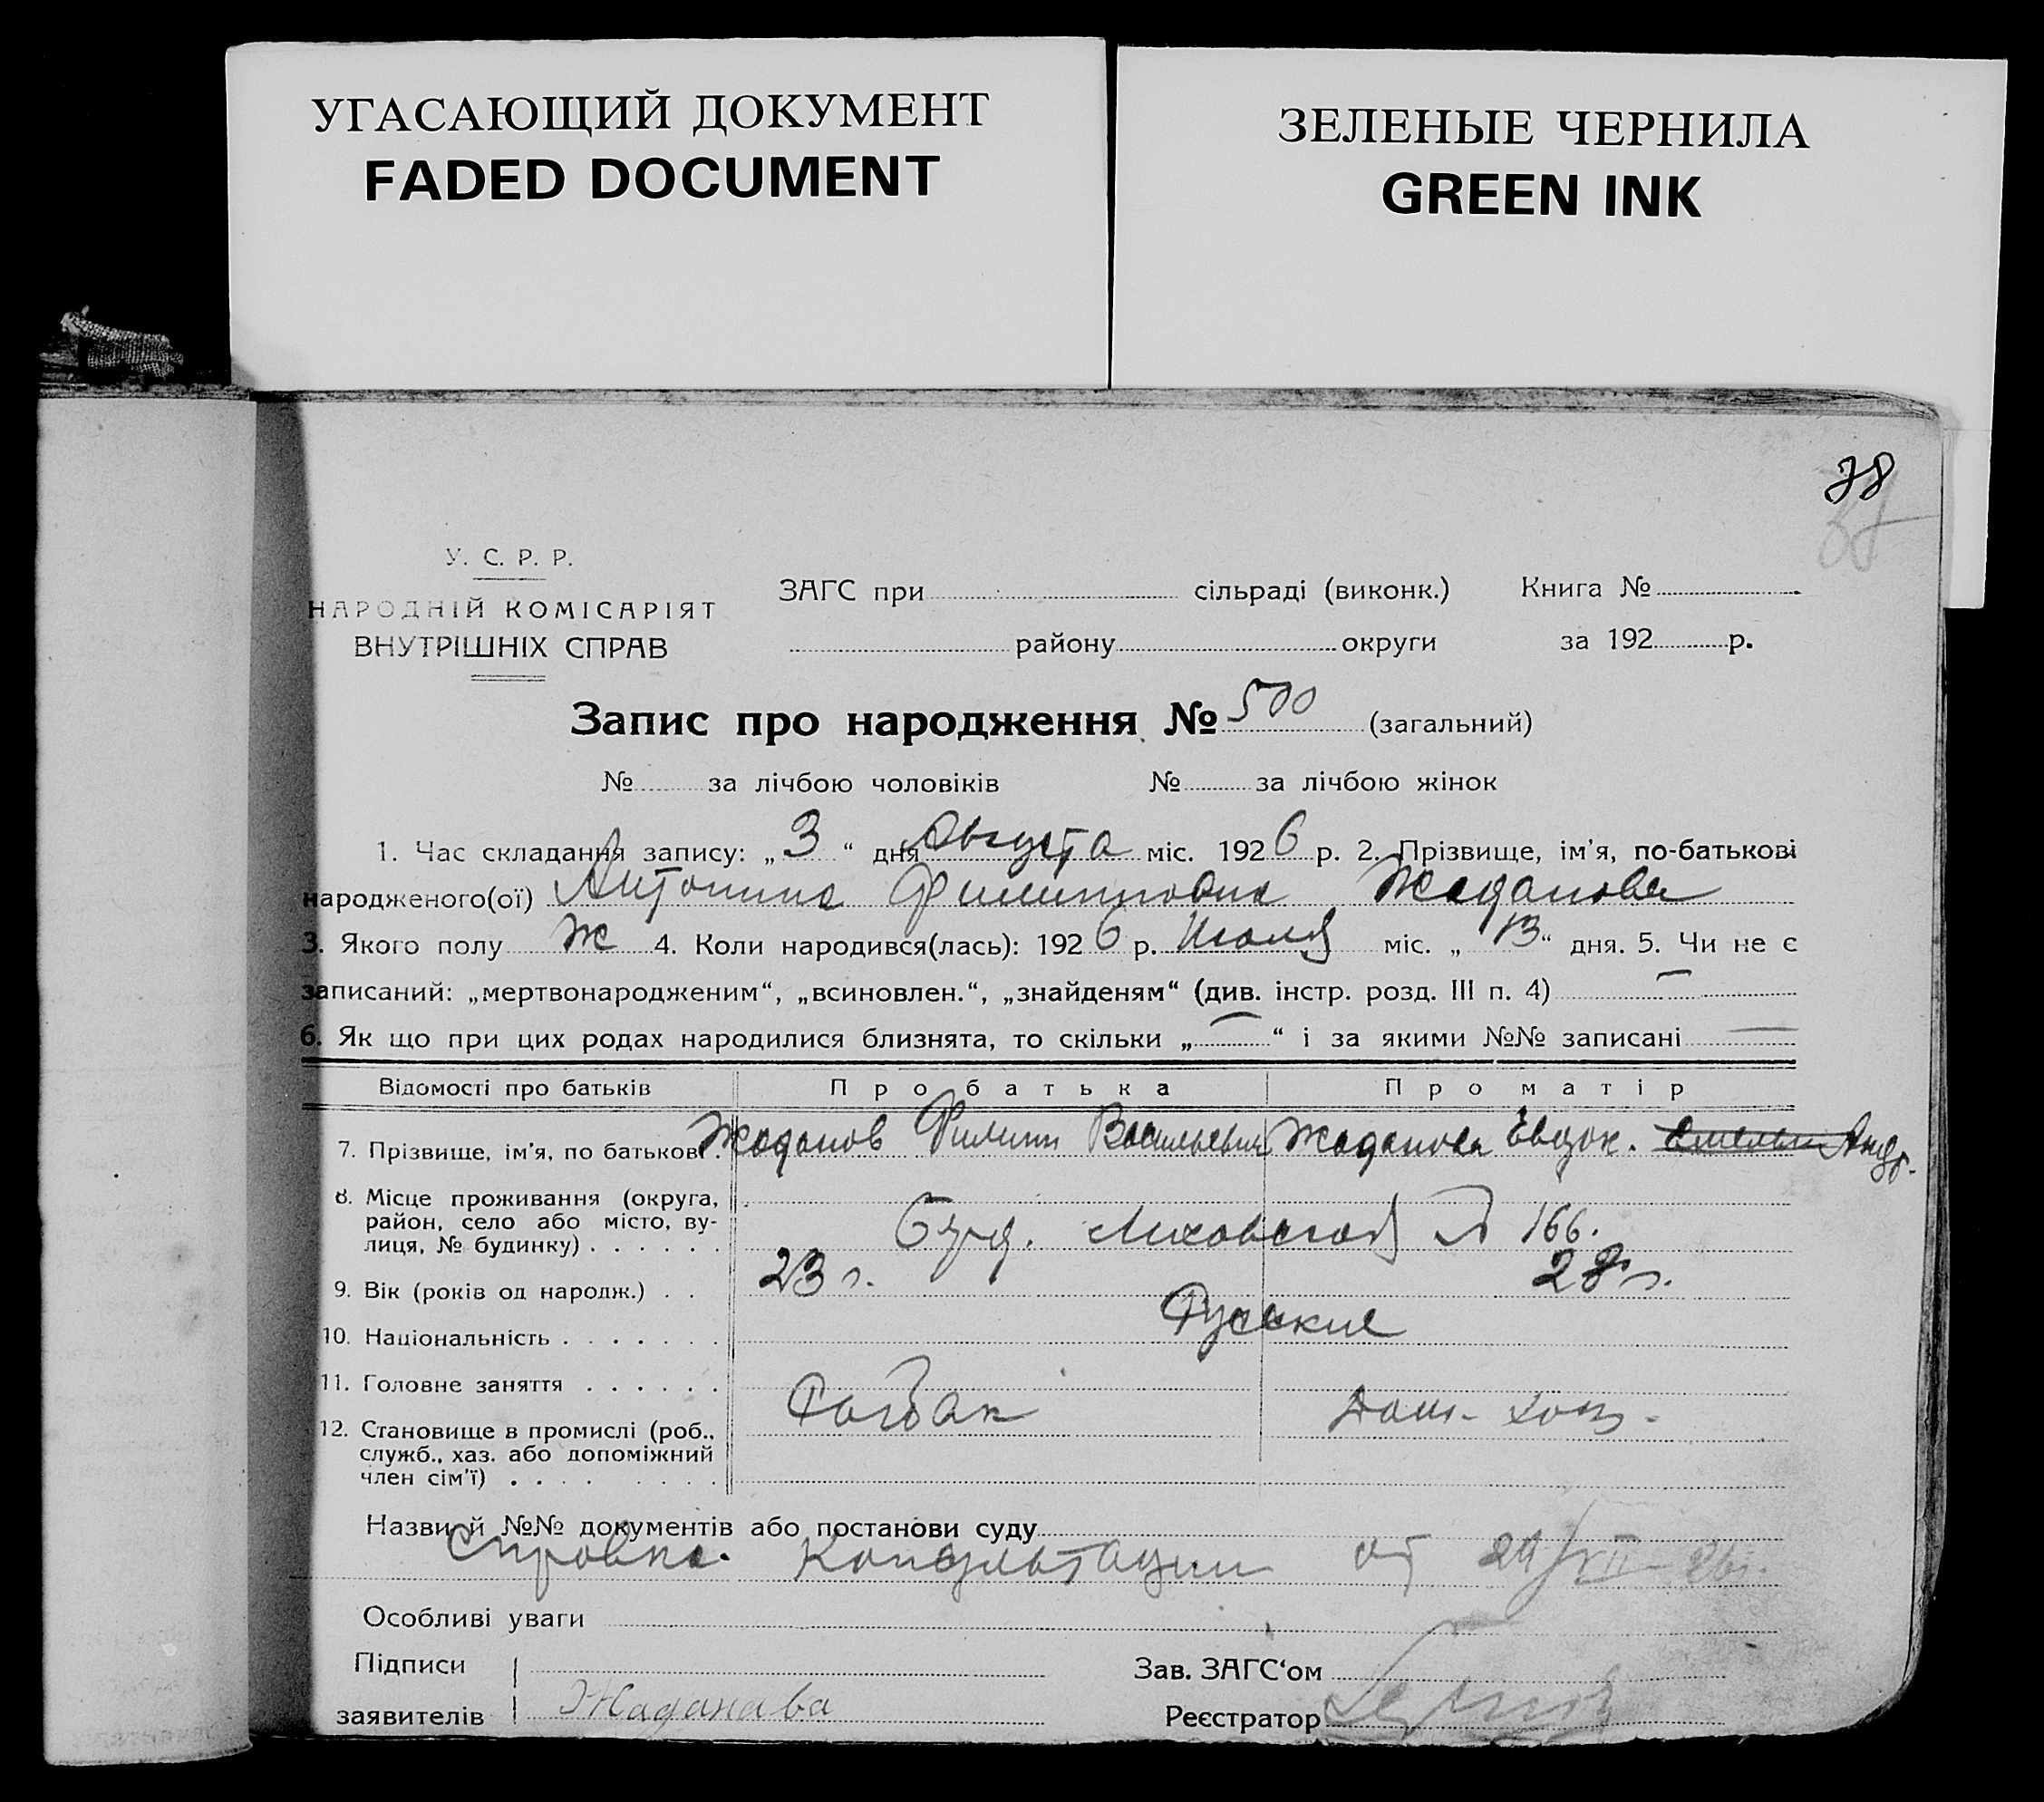 УГАСАЮЩИЙ ДОКУМЕНТ
FADED DOCUMENT
ЗЕЛЕНЫЕ ЧЕРНИЛА
GREEN INK
38
У. С. Р. Р.
НАРОДНІЙ КОМІСАРІЯТ
ВНУТРІШНІХ СПРАВ
ЗАГС при сільраді (виконк.) Книга №
району округи за 192 р.
Запис про народження № 500 (загальний)
№ за лічбою чоловіків № за лічбою жінок
1. Час складання запису: „3“ дня Августа міс. 1926 р. 2. Прізвище, ім'я, по-батькові
народженого(ої) Антонина Филипповна Жаданова
3. Якого полу Ж 4. Коли народився(лась): 1926 р. Июля міс. „13“ дня. 5. Чи не є
записаний: „мертвонародженим“, „всиновлен.“, „знайденям“ (див. інстр. розд. III п. 4) —
6. Як що при цих родах народилися близнята, то скільки „—“ і за якими №№ записані —
Відомості про батьків Про батька Про матір
7. Прізвище, ім'я, по батькові . Жаданов Филипп Васильевич Жаданова Евдок. Андр.
8. Місце проживання (округа,
район, село або місто, ву-
лиця, № будинку) . . . . . . Лиховской 166.
9. Вік (років од народж.) . . 23 г. 28 г.
10. Національність . . . . . . . Русские
11. Головне заняття . . . . . .
12. Становище в промислі (роб., Дом. хоз.
служб., хаз. або допоміжний
член сім'ї) . . . . . . . .
Назви й №№ документів або постанови суду
Справка Консультации от 29/VII-26г.
Особливі уваги
Підписи Зав. ЗАГС‘ом
заявителів Жаданава Реєстратор